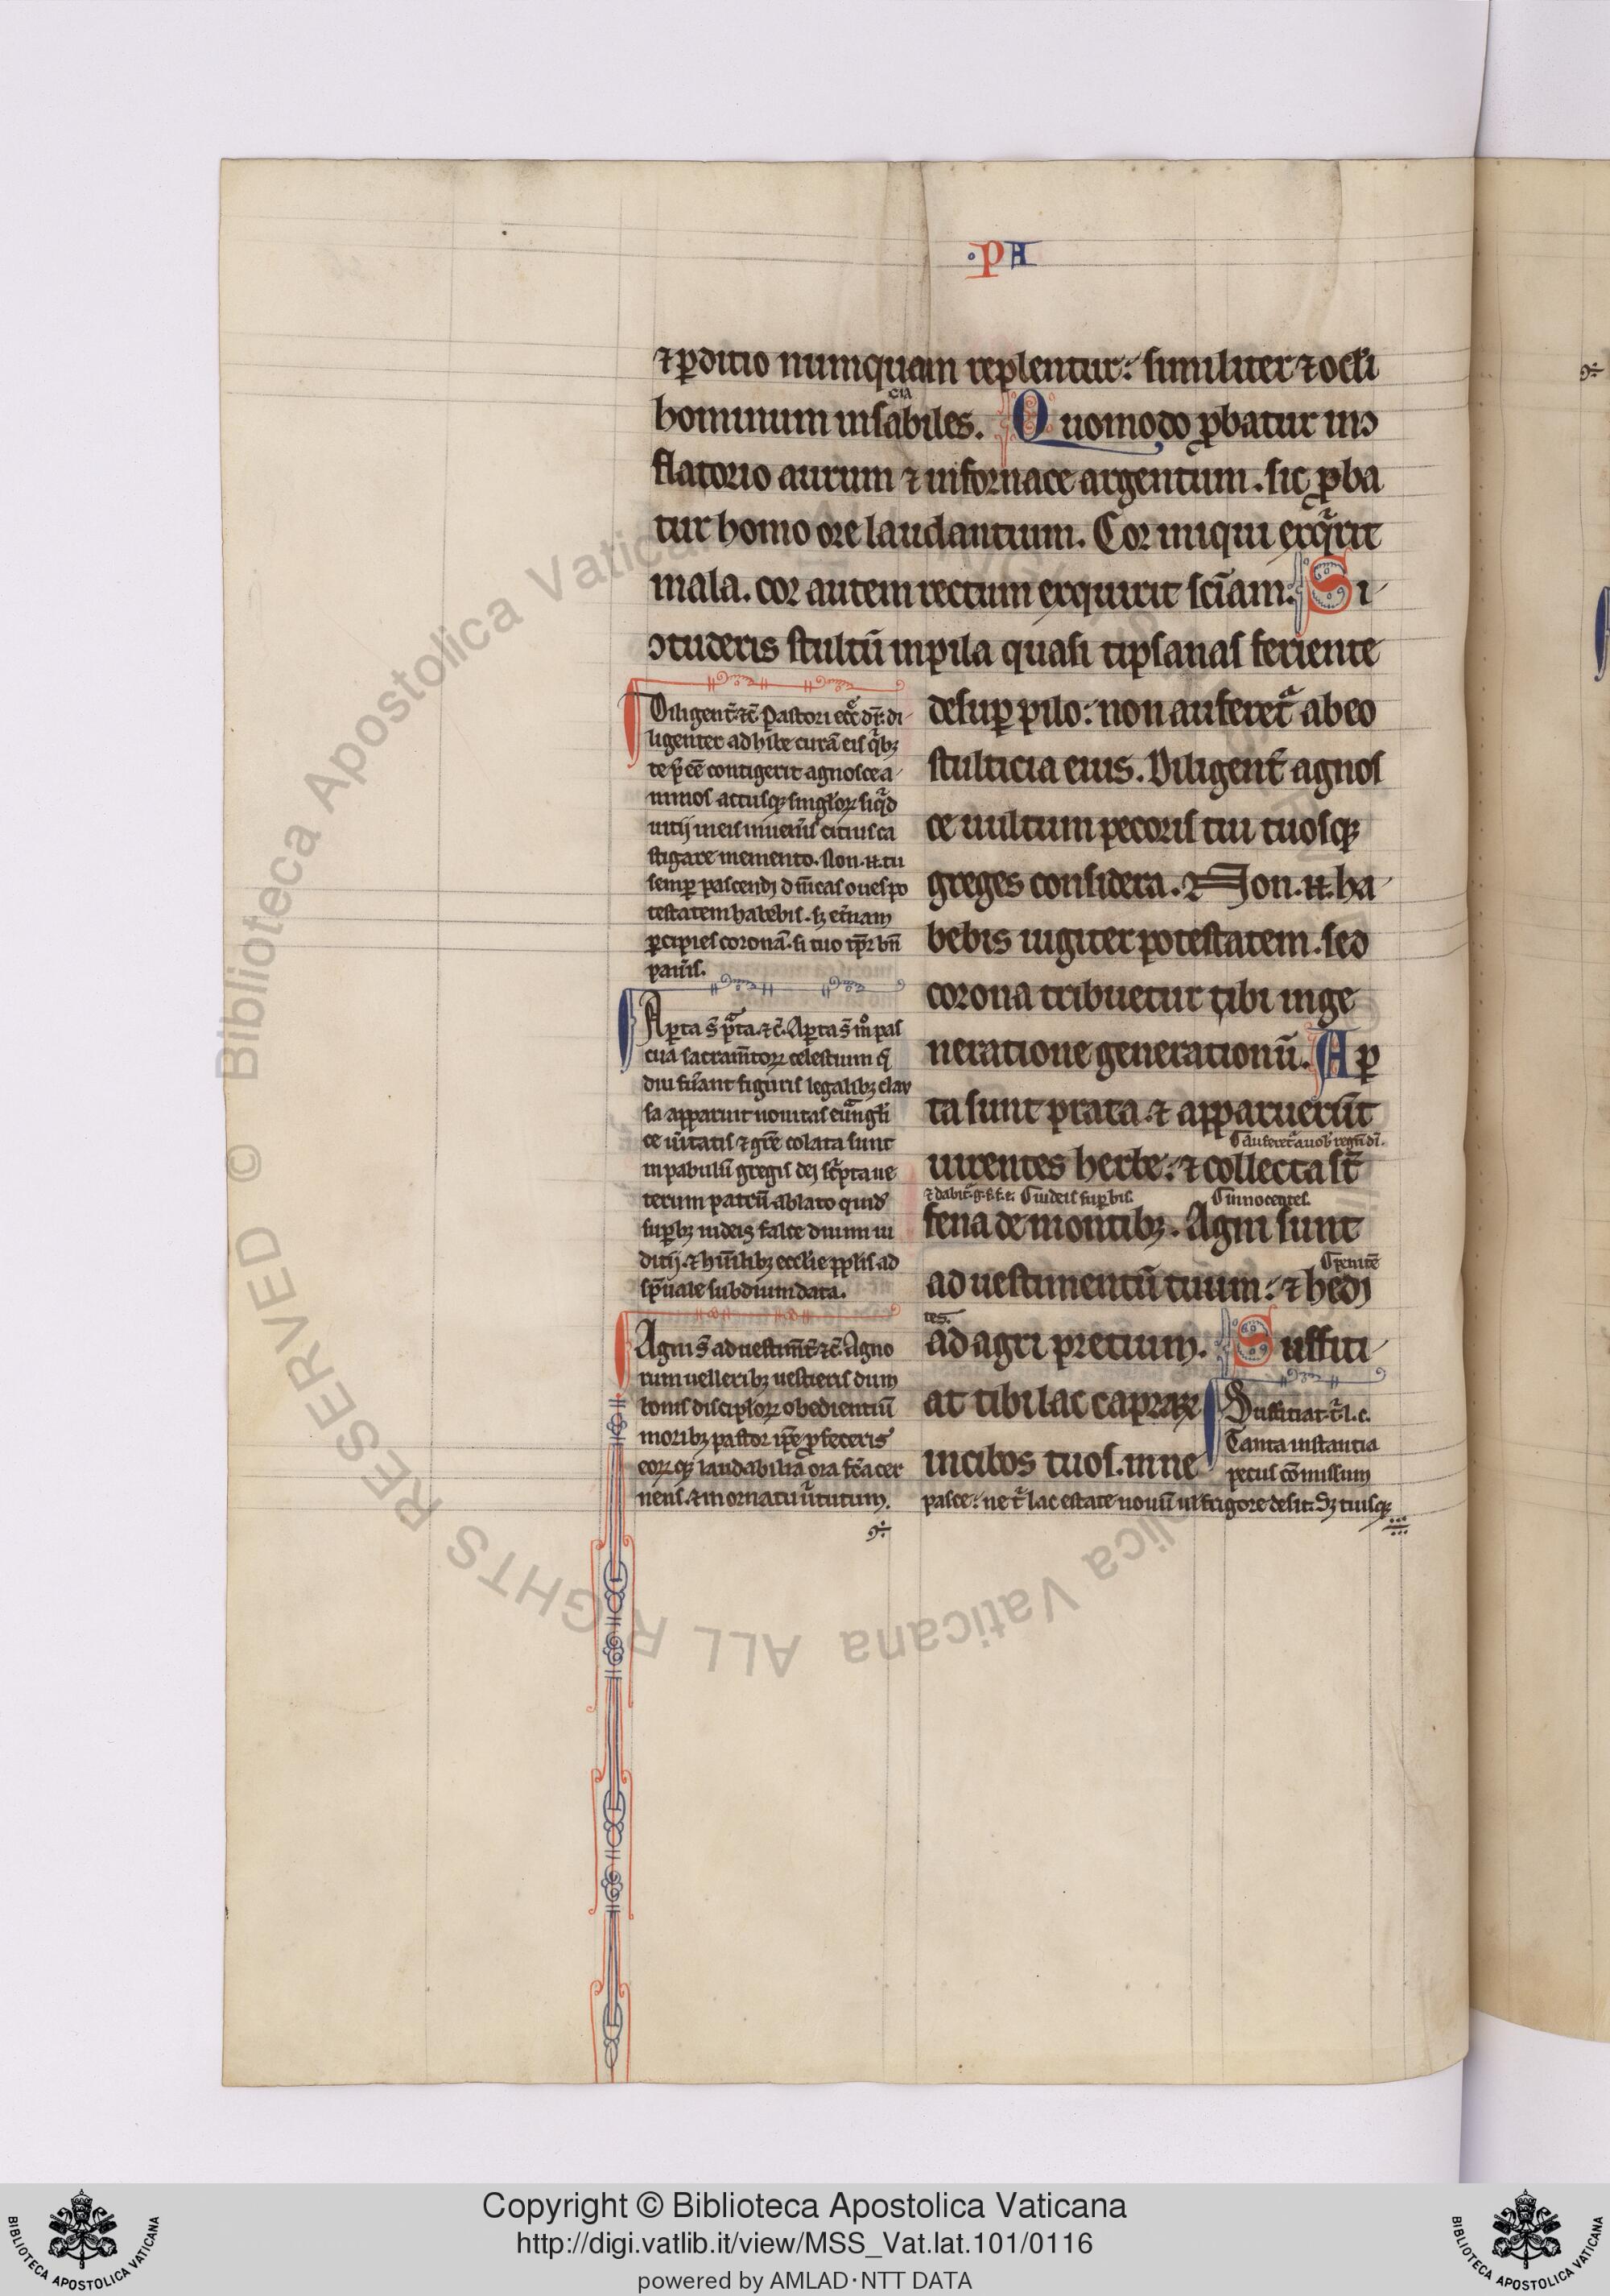 PA
⁊ ꝑditio numquam replentur: similiter ⁊ ocl̄i
hominum insabiles. Quomodo ꝓbatur in ↄ
cia
flatorio aurum ⁊ in fornace argentum. sic ꝓba
tur homo ore laudantium. Cor iniqui exq̃rit
mala. cor autem rectum exquirit sciam: Si
ↄtuderis stultū in pila quasi tipsanas feriente
desuꝑ pilo: non auferet᷑ ab eo
stulticia eius. Diligent̄ agnos
ce uultum pecoris tui tuosqꝫ
greges considera. Non .n. ha
bebis iugiter potestatem. sed
corona tribuetur tibi in ge
neratione generationū. Aꝑ
ta sunt prata. ⁊ apparuerūt
uirentes herbe: ⁊ collecta st̄
fena de montibꝫ. Agni sunt
ad uestimentū tuum: ⁊ hedi
ad agri pretium. Suffiti
at tibi lac capraꝝ
in cibos tuos. in ne
Diligent̄ ⁊c̄. Pastori ecc̄e dr̄: di
ligenter adhibe curā eis q̃bꝫ
te p̄eē contigerit agnosce a
nimos actusqꝫ singl̄oꝝ si q̇d
uitij in eis inuen̄is citius ca
stigare memento. Non .n. tu
semꝑ pascendi dn̄icas oues po
testatem habebis. sꝫ et̄nam
ꝑcipies coronā. si tuo tp̄r bn̄
pau̅is.
Aꝑta s̄ p̃ta. ⁊c̄. Aꝑta s̄ in̊ pas
cua sacram̄toꝝ celestium q̄
diu fu̅ant figuris legalibꝫ clau
sa apparuit nouitas euāngl̄i
ce u̅itatis ⁊ gr̄e colata sunt
in pabulū gregis dei sc̄pta ue
terum patrū ablato quid̄
suꝑbꝫ iudeis falce diuini iu
ditij. ⁊ hūilibꝫ ecclīe ppl̄is ad
sp̄uale subdium data.
Agni s̄ ad uestim̄t̄ ⁊c̄. Agno
rum uelleribꝫ uestieris dum
bonis discipl̄oꝝ obedientiū
moribꝫ pastor ip̄e ꝓfeceris
eoꝝqꝫ laudabilia ora fc̄a cer
nens. ⁊ in ornatu u̅tutum.
auferet᷑ a uob̄ regnū di.
⁊ dabit᷑ g. f. f. e. iudeis suꝑbis.
innocentes.
penitē
tes.
Suffitiat t̄ l. c.
Tanta instantia
pecus cōmissum
pasce: ne t̄ lac estate nouū ul̄ frigore desit. Sꝫ tuisqꝫ
Copyright © Biblioteca Apostolica Vaticana
http://digi.vatlib.it/view/MSS_Vat.lat.101/0116
powered by AMLAD·NTT DATA
BIBLIOTECA APOSTOLICA VATICANA
BIBLIOTECA APOSTOLICA VATICANA
© Biblioteca Apostolica Vaticana ALL RIGHTS RESERVED